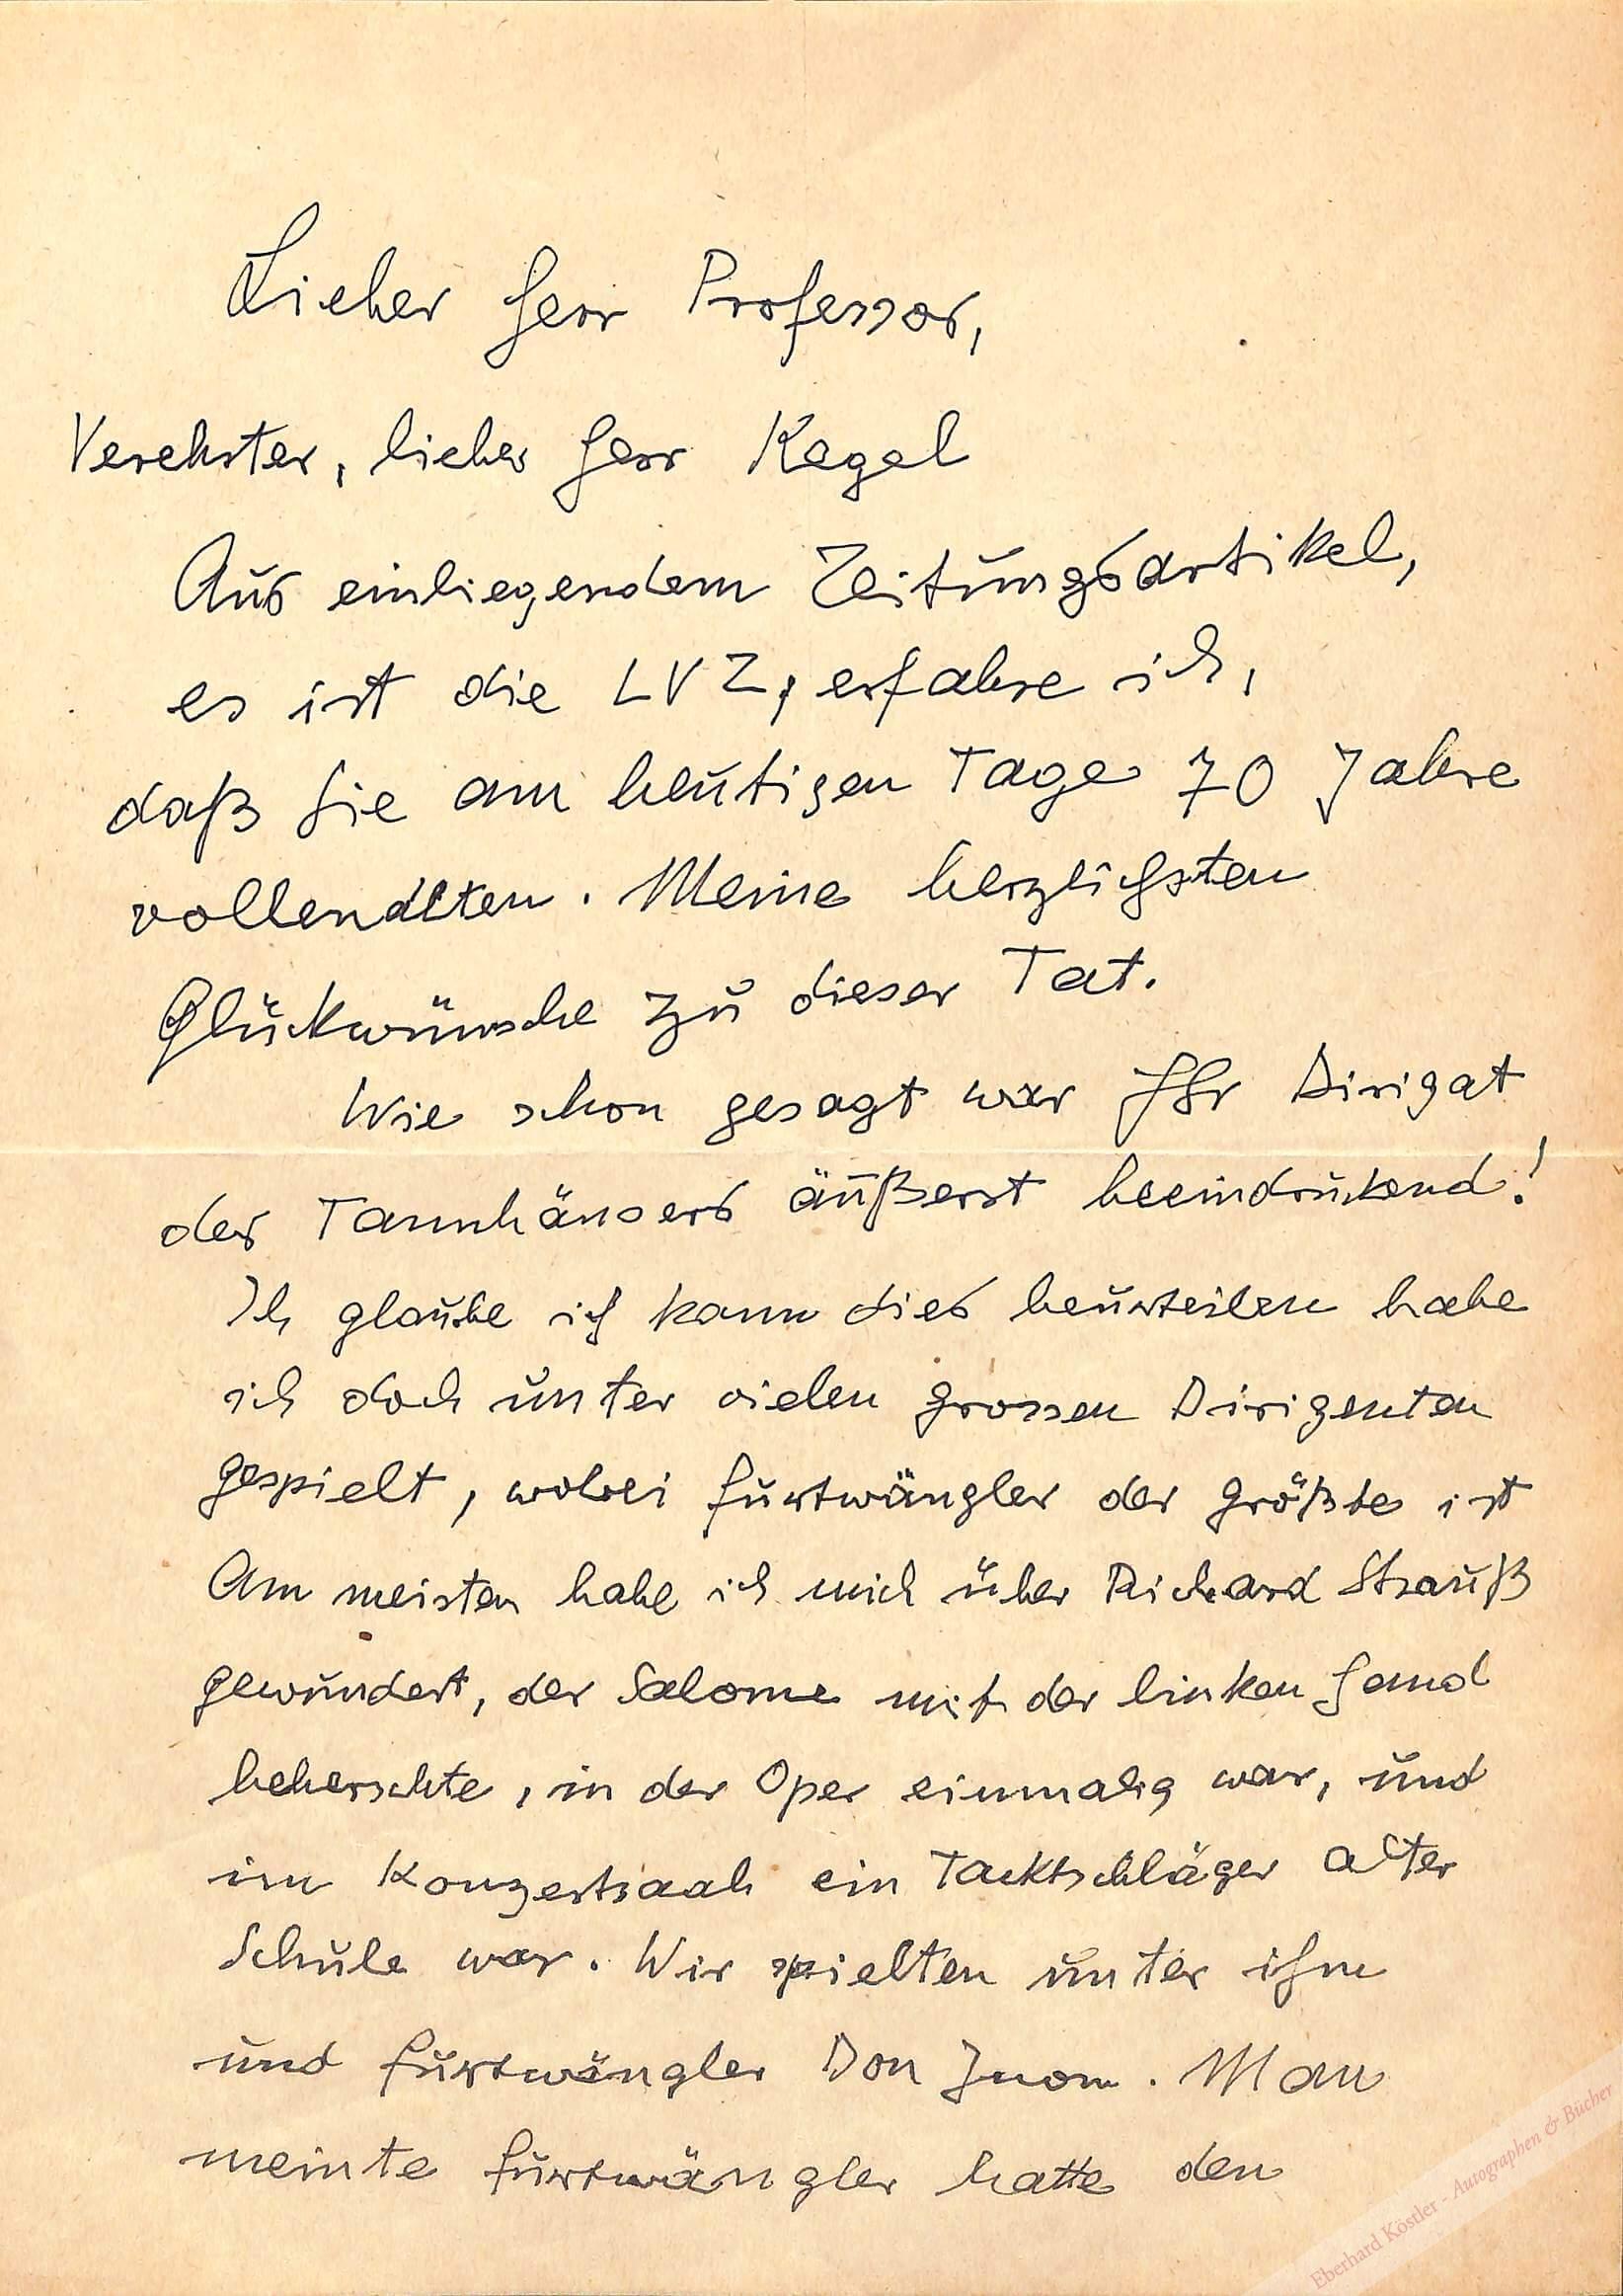 Lieber Herr Professor,
Verehrter, lieber Herr Kegel
Aus einliegendem Zeitungsartikel,
es ist die LVZ, erfahre ich,
daß Sie am heutigen Tage 70 Jahre
vollendeten. Meine herzlichsten
Glückwünsche zu dieser Tat.
Wie schon gesagt war Ihr Dirigat
des Tannhäusers äußerst beeindrukend!
Ich glaube ich kann dies beurteilen habe
ich doch unter vielen grossen Dirigenten
gespielt, wobei Furtwängler der größte ist
Am meisten habe ich mich über Richard Strauß
gewundert, der Salome mit der linken Hand
beherschte, in der Oper einmalig war, und
im Konzertsaal ein Tacktschläger alter
Schule war. Wir spielten unter ihm
und Furtwängler Don Juan. Man
meinte Furtwängler hatte den
Eberhard Köstler - Autographen & Bücher